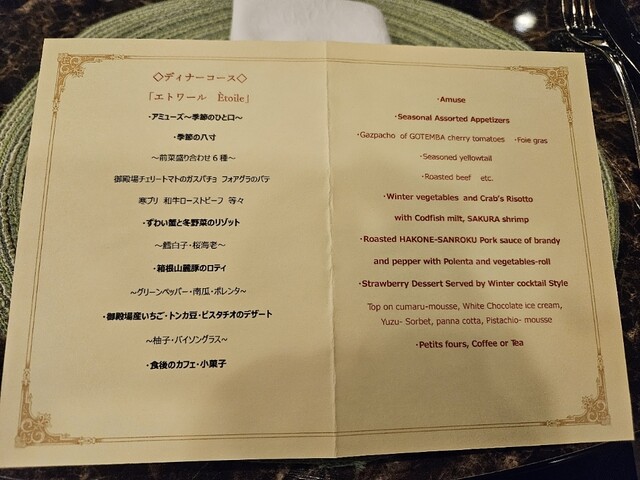 ◇ディナーコース◇
「エトワール　Ètoile」
・アミューズ～季節のひと口～
・季節の八寸
～前菜盛り合わせ６種～
御殿場チェリートマトのガスパチョ フォアグラのパテ
寒ブリ 和牛ローストビーフ 等々
・ずわい蟹と冬野菜のリゾット
～鱈白子・桜海老～
・箱根山麓豚のロティ
～グリーンペッパー・南瓜・ポレンタ～
・御殿場産いちご・トンカ豆・ピスタチオのデザート
～柚子・バイソングラス～
・食後のカフェ・小菓子
・Amuse
・Seasonal Assorted Appetizers
・Gazpacho of GOTEMBA cherry tomatoes ・Foie gras
・Seasoned yellowtail
・Roasted beef etc.
・Winter vegetables and Crab's Risotto
with Codfish milt, SAKURA shrimp
・Roasted HAKONE-SANROKU Pork sauce of brandy
and pepper with Polenta and vegetables-roll
・Strawberry Dessert Served by Winter cocktail Style
Top on cumaru-mousse, White Chocolate ice cream,
Yuzu- Sorbet, panna cotta, Pistachio- mousse
・Petits fours, Coffee or Tea